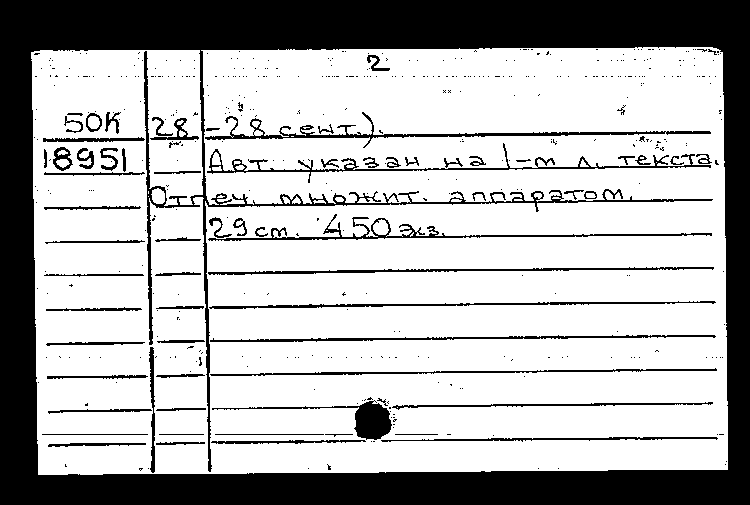 2
50К 28 - 28 сент.).
18951 Авт. указан на 1-м л. текста.
Отпеч. множит. аппаратом.
29 см. 450 экз.